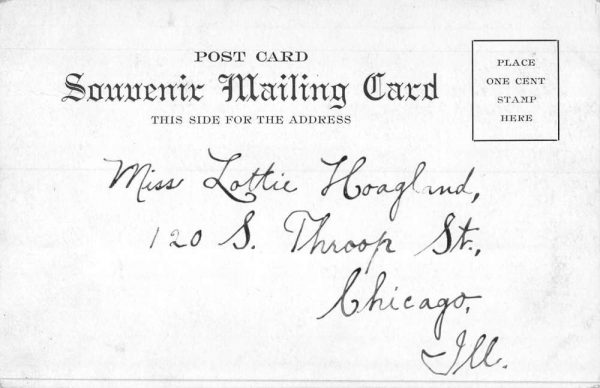 POST CARD
Souvenir Mailing Card
THIS SIDE FOR THE ADDRESS
PLACE
ONE CENT
STAMP
HERE
Miss Lottie Hoagland,
120 S. Throop St.,
Chicago,
Ill.